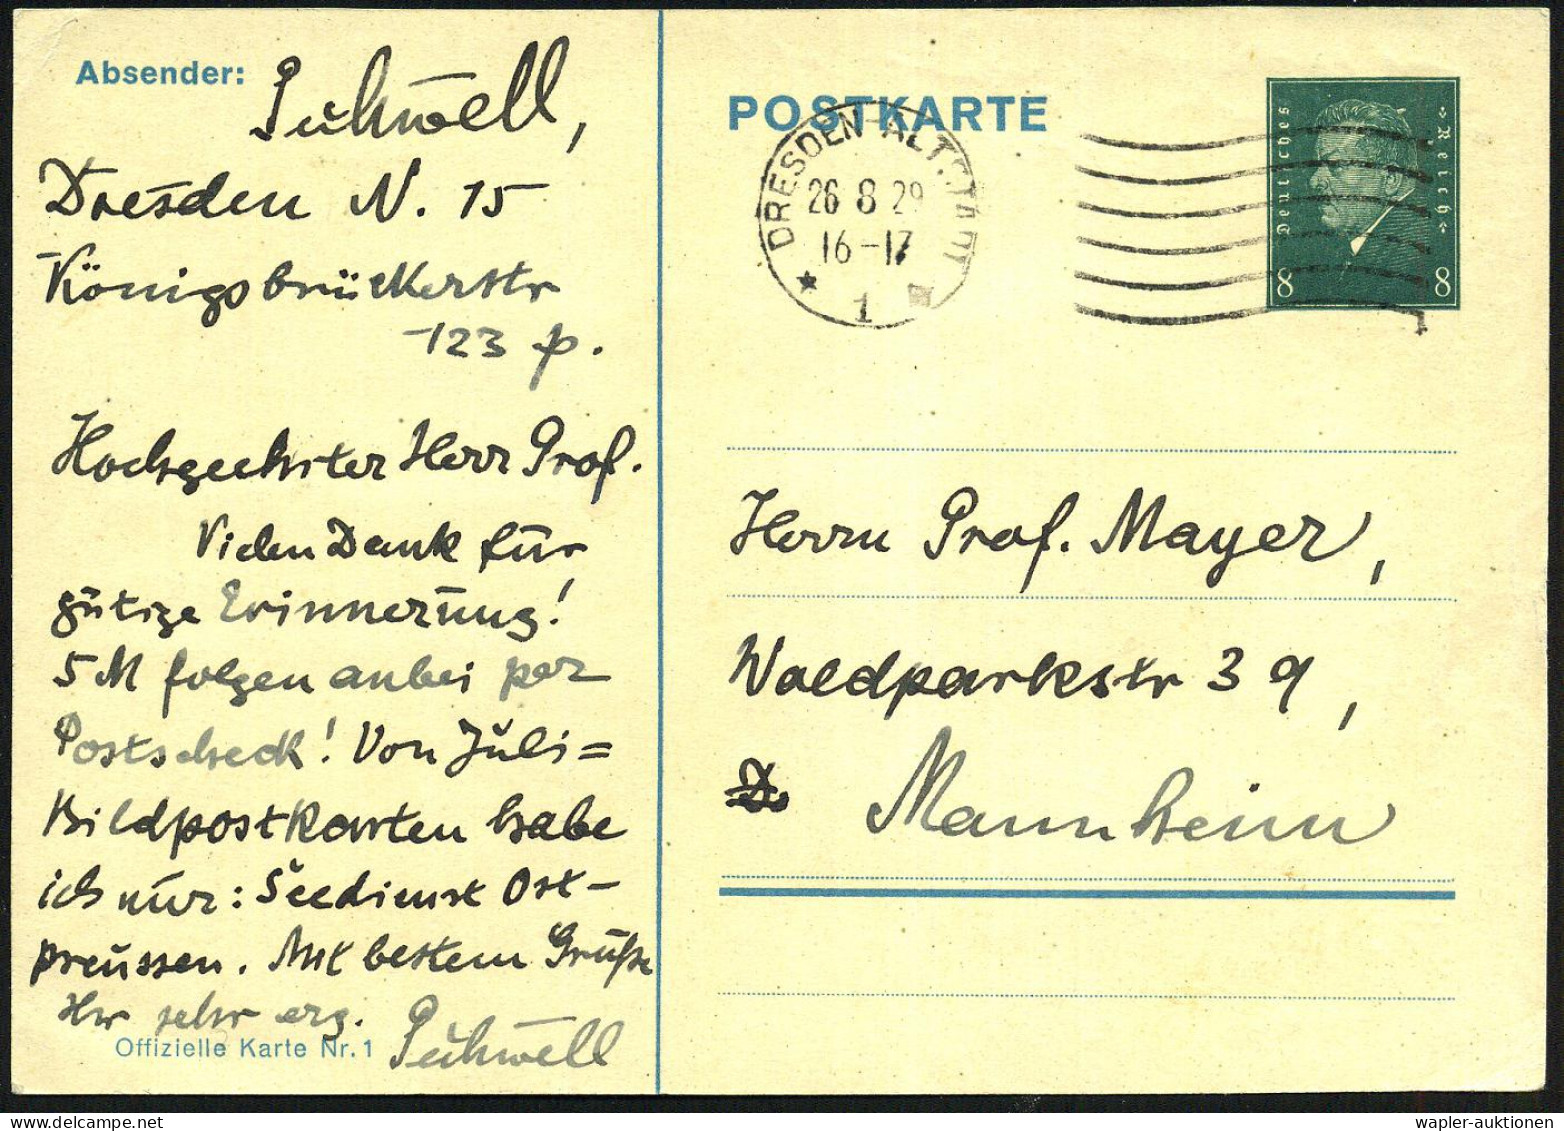 Absender:
Dresden N. 15
Königsbrückerstr
123 p.
Hochgeehrter Herr Prof.
Vielen Dank für
gütige Erinnerung!
5 M folgen anbei per
Postscheck! Von Juli=
Bildpostkarten habe
ich nur: Seedienst Ost-
preussen. Mit bestem Gruße
Ihr sehr erg.
Offizielle Karte Nr. 1
POSTKARTE
DRESDEN-ALTSTADT
26 8 29
16-17
1
Deutsches
Reich
8 8
Herrn Prof. Mayer,
Waldparkstr 39,
Mannheim
wapler-auktionen